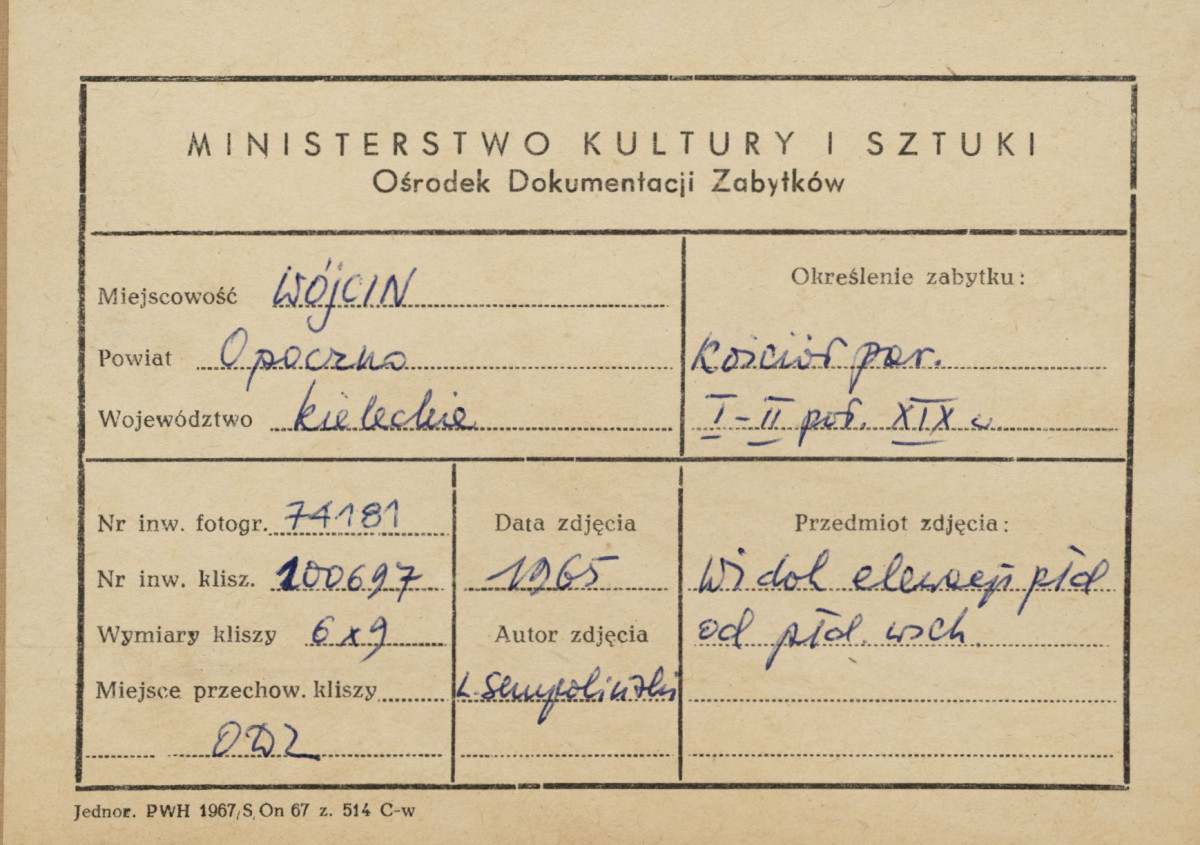 MINISTERSTWO KULTURY I SZTUKI
Ośrodek Dokumentacji Zabytków
Miejscowość WÓJCIN
Powiat Opoczno
Województwo kieleckie
Określenie zabytku:
Kościół par.
I-II poł. XIX w
Nr inw. fotogr. 74181
Nr inw. klisz. 100697
Wymiary kliszy 6x9
Miejsce przechow. kliszy
ODZ
Data zdjęcia
1965
Autor zdjęcia
L Sempoliński
Przedmiot zdjęcia:
Widok elewacji płd
od płd. wsch.
Jednor. PWH 1967/S On 67 z. 514 C-w